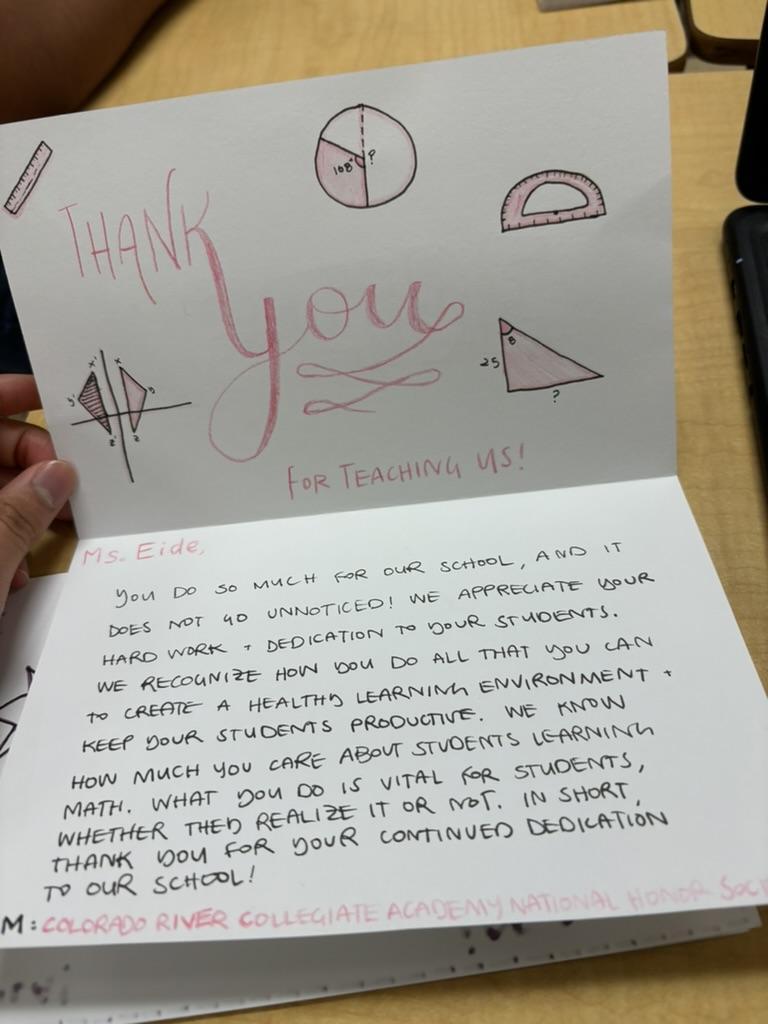 THANK
you
FOR TEACHING US!
108°
?
x'
x
y'
y
z'
z
θ
25
?
Ms. Eide,
YOU DO SO MUCH FOR OUR SCHOOL, AND IT
DOES NOT GO UNNOTICED! WE APPRECIATE YOUR
HARD WORK + DEDICATION TO YOUR STUDENTS.
WE RECOGNIZE HOW YOU DO ALL THAT YOU CAN
TO CREATE A HEALTHY LEARNING ENVIRONMENT +
KEEP YOUR STUDENTS PRODUCTIVE. WE KNOW
HOW MUCH YOU CARE ABOUT STUDENTS LEARNING
MATH. WHAT YOU DO IS VITAL FOR STUDENTS,
WHETHER THEY REALIZE IT OR NOT. IN SHORT,
THANK YOU FOR YOUR CONTINUED DEDICATION
TO OUR SCHOOL!
M: COLORADO RIVER COLLEGIATE ACADEMY NATIONAL HONOR